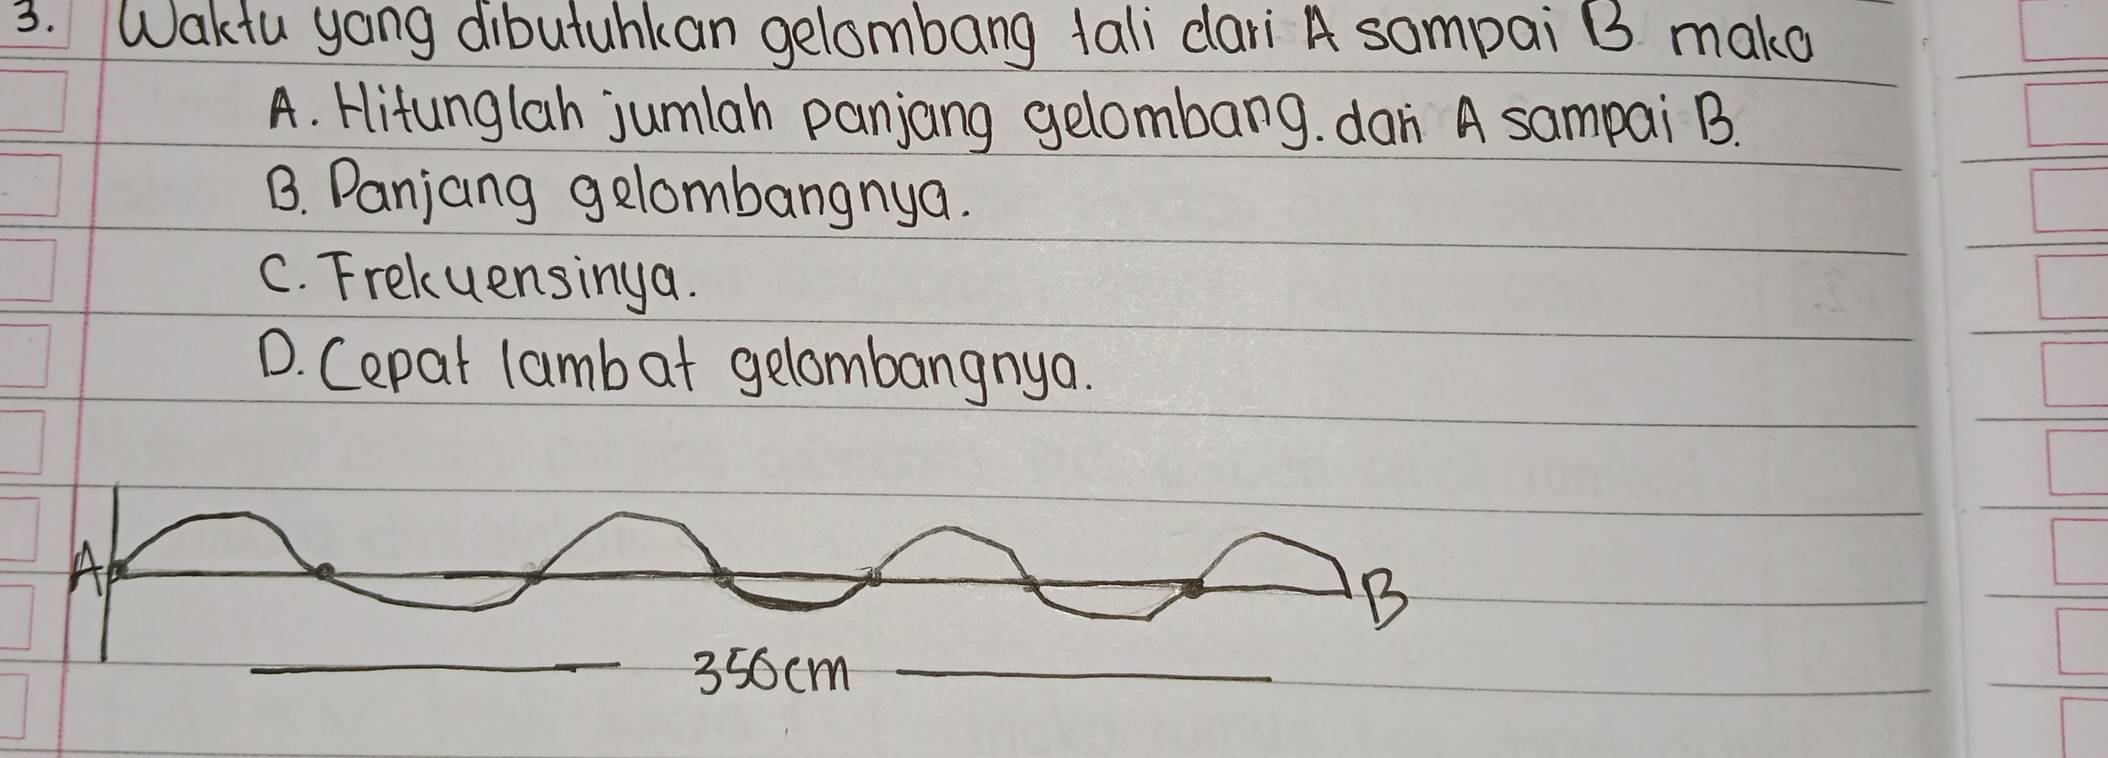 3. Waktu yang dibutuhkan gelombang tali dari A sampai B maka
A. Hitunglah jumlah panjang gelombang. dari A sampai B.
B. Panjang gelombangnya.
C. Frekuensinya.
D. Cepat lambat gelombangnya.
A B
350cm